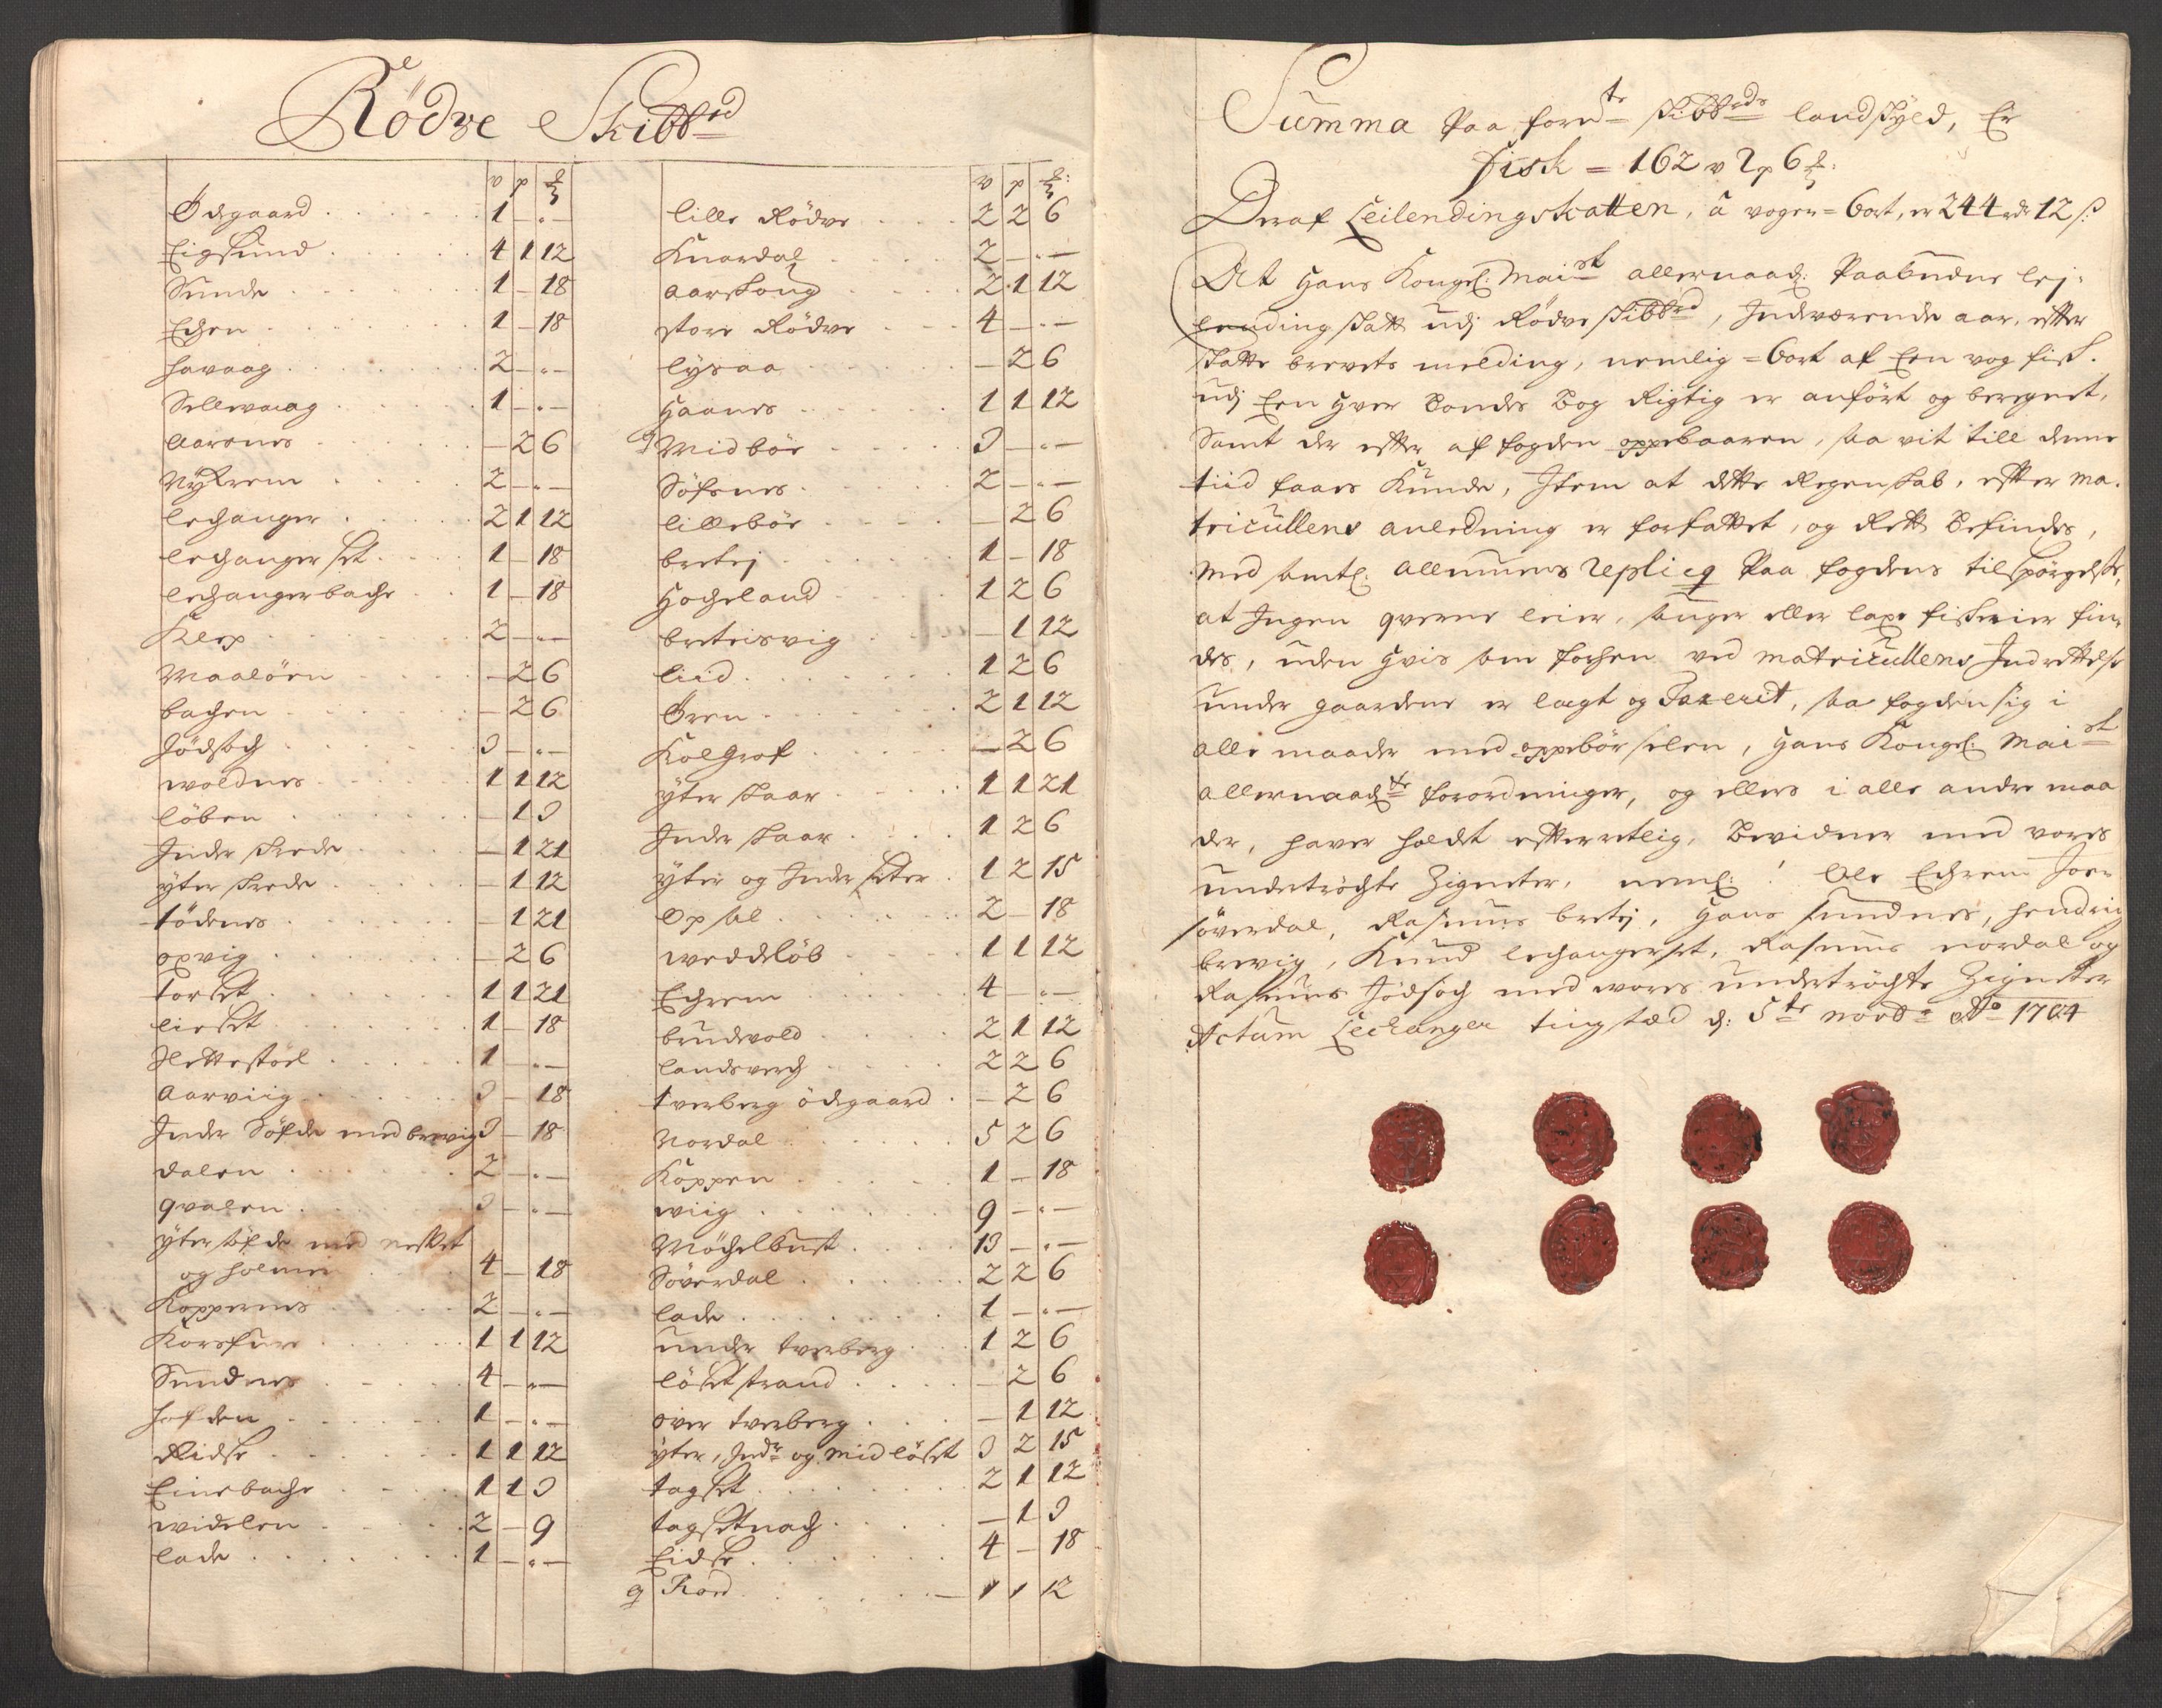 Rödve Skibb^rd
v p ℔
Ödegaard 1 - -
Eigsund 4 1 12
Sunde 1 - 18
Echen 1 - 18
Havaag 2 - -
Sellewaag 1 - -
Aarsnes - 2 6
Nÿkrem 2 - -
Lechanger 2 1 12
Lechangerset 1 - 18
Lechangerbache 1 - 18
Klep 2 - -
Maalöen - 2 6
Bachen - 2 6
Jödsoch 3 - -
Woldnes 1 1 12
Löben - 1 3
Inder Skrede - 1 21
Ÿter Skrede - 1 12
Födenes - 1 21
Opvig - 2 6
Torset 1 1 21
Lieset 1 - 18
Slettestöel 1 - -
Aarviig 3 - 18
Inder Söfde med brevig 3 - 18
Dalen 2 - -
Qvalen 3 - -
Ÿter söfde med nesset
og Holmen 4 - 18
Koppernes 2 - -
Korsfure 1 1 12
Sundnes 4 - -
Hofden 1 - -
Ridse 1 1 12
Einebache 1 1 3
Widelen 2 - 9
Lade 1 - -
v p ℔
Lille Rödve 2 2 6
Knardal 2 - -
Aarskoug 2 1 12
Store Rödve 4 - -
Lÿsaa - 2 6
Haanes 1 1 12
Midböe 3 - -
Söfsnes 2 - -
Lilleböe - 2 6
Bretej 1 - 18
Hocheland 1 2 6
Breteisvig - 1 12
Liid 1 2 6
Ören 2 1 12
Kolgrof - 2 6
Ÿter Skaar 1 1 21
Inder Skaar 1 2 6
Ÿter og Inder seter 1 2 15
Opsal 2 - 18
Weddelöb 1 1 12
Echrem 4 - -
Brudevold 2 1 12
Landsverch 2 2 6
Tverberg ödegaard - 2 6
Nordal 5 2 6
Koppen 1 - 18
Wiig 9 - -
Möchelbust 13 - -
Söverdal 2 2 6
Lade 1 - -
Under tverberg 1 2 6
Lösetstrand - 2 6
Over tverberg - 1 12
Ÿter, Inde^r og Midlöset 3 2 15
Tagset 2 1 12
Tagsetnach - 1 3
Eidse 4 - 18
Rörd 1 1 12
Summa Paa forn^te skibb^rds landskÿld, Er
Fisk = 162 v 2 p 6 ℔:
Deraf Leilendingskatten, â vogen = 6ort, er 244 rdr 12 s:
At Hans Kongel: Mai^st allernaad: Paabudne lej-
lending skatt udj Rödve skibb^rd, Indværende aar, efter
skatte brevets melding, nemlig = 6ort af Een vog fisk.
udj Een hver Bondes Bog Rigtig er anfört og beregnet,
Samt der efter af fogden oppebaaren, saa vit till denne
tiid faaes Kunde, Item at dette Regenskab, efter ma-
triculens anledning er forfattet, og Rett Befindes,
Med samtl: Allmuens Replicq Paa fogdens tilspörgelse,
at Ingen qverne leier, sauger eller laxe fiskerier fin-
des, uden hvis som forhen ved matricullens Indrettelse
under gaardene er lagt og Taxerit, saa fogden sig i
alle maader med oppebörselen, Hans Kongel: Mai^st
allernaad^ste forordninger, og ellers i alle andre maa
der, haver holdt efterretlig, Bevidner med vores
undertröchte Zigneter, neml: Ole Echrem Joe-
söverdal, Rasmus bretej, Hans sundnes, Hendrig
brevig, Knud lechangerset, Rasmus nordal og
Rasmus Jödsoch med vores undertröchte Zigneter
Actum Lechanger tingsted d: 5^te novb^r A^o 1704